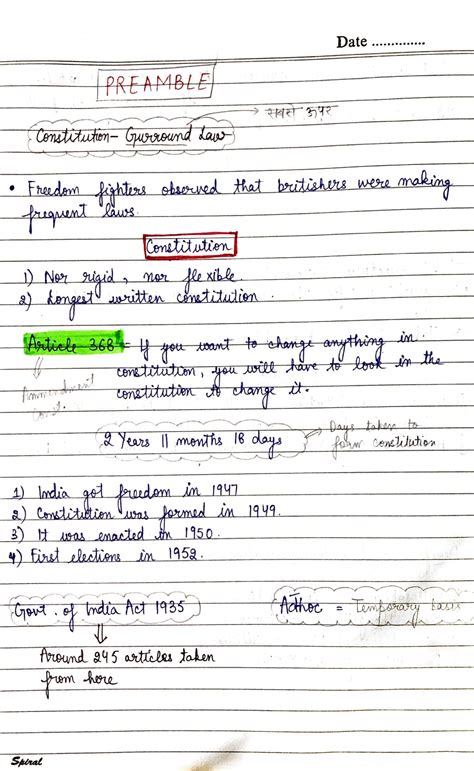 Date ..............
PREAMBLE
→ सबसे ऊपर
Constitution- Gurround Law
• Freedom fighters observed that britishers were making
frequent laws.
Constitution
1) Nor rigid, nor flexible.
2) Longest written constitution.
Article 368 = If you want to change anything in
constitution, you will have to look in the
Ammendment
constitution to change it.
Const.
2 Years 11 months 18 days
Days taken to
form constitution
1) India got freedom in 1947
2) Constitution was formed in 1949.
3) It was enacted in 1950.
4) First elections in 1952.
Govt. of India Act 1935
Adhoc = Temporary basis
Around 245 articles taken
from here
Spiral